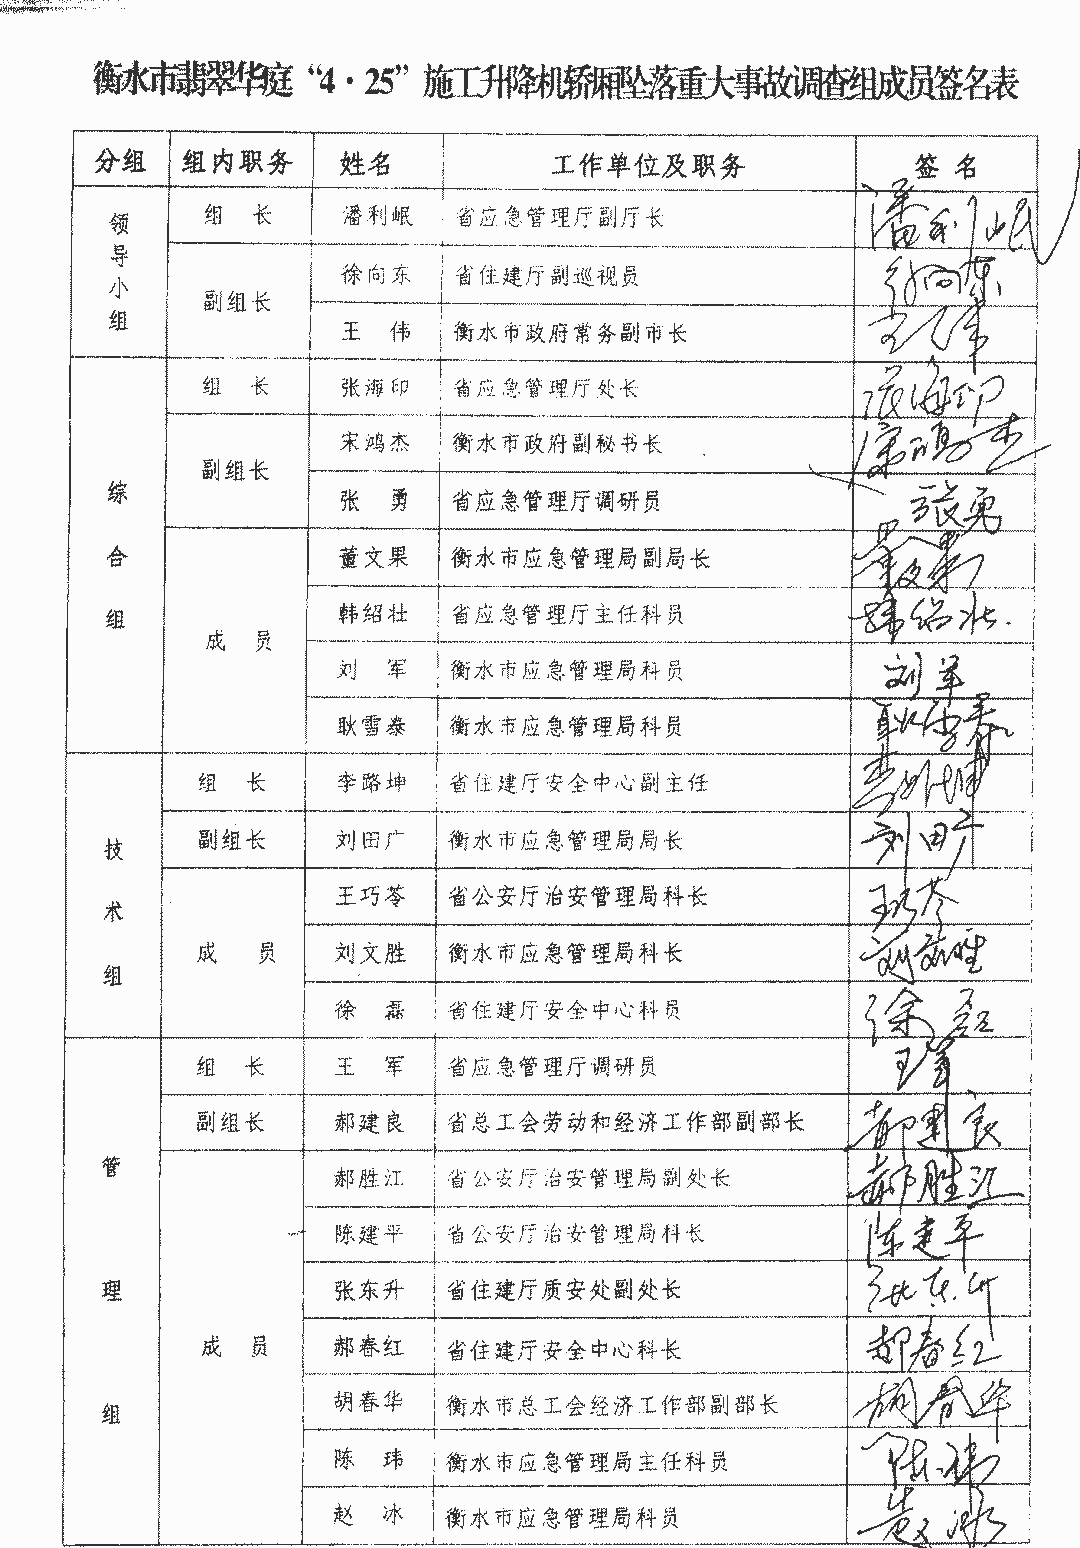 衡水市翡翠华庭“4·25”施工升降机轿厢坠落重大事故调查组成员签名表
分组 组内职务 姓名 工作单位及职务 签名
领导小组 组长 潘利岷 省应急管理厅副厅长 潘利岷
副组长 徐向东 省住建厅副巡视员 徐向东
王伟 衡水市政府常务副市长 王伟
综合组 组长 张海印 省应急管理厅处长 张海印
副组长 宋鸿杰 衡水市政府副秘书长 宋鸿杰
张勇 省应急管理厅调研员 张勇
成员 董文果 衡水市应急管理局副局长 董文果
韩绍壮 省应急管理厅主任科员 韩绍壮
刘军 衡水市应急管理局科员 刘军
耿雪泰 衡水市应急管理局科员 耿雪泰
技术组 组长 李路坤 省住建厅安全中心副主任 李路坤
副组长 刘田广 衡水市应急管理局局长 刘田广
成员 王巧苓 省公安厅治安管理局科长 王巧苓
刘文胜 衡水市应急管理局科长 刘文胜
徐磊 省住建厅安全中心科员 徐磊
管理组 组长 王军 省应急管理厅调研员 王军
副组长 郝建良 省总工会劳动和经济工作部副部长 郝建良
成员 郝胜江 省公安厅治安管理局副处长 郝胜江
陈建平 省公安厅治安管理局科长 陈建平
张东升 省住建厅质安处副处长 张东升
郝春红 省住建厅安全中心科长 郝春红
胡春华 衡水市总工会经济工作部副部长 胡春华
陈玮 衡水市应急管理局主任科员 陈玮
赵冰 衡水市应急管理局科员 赵冰